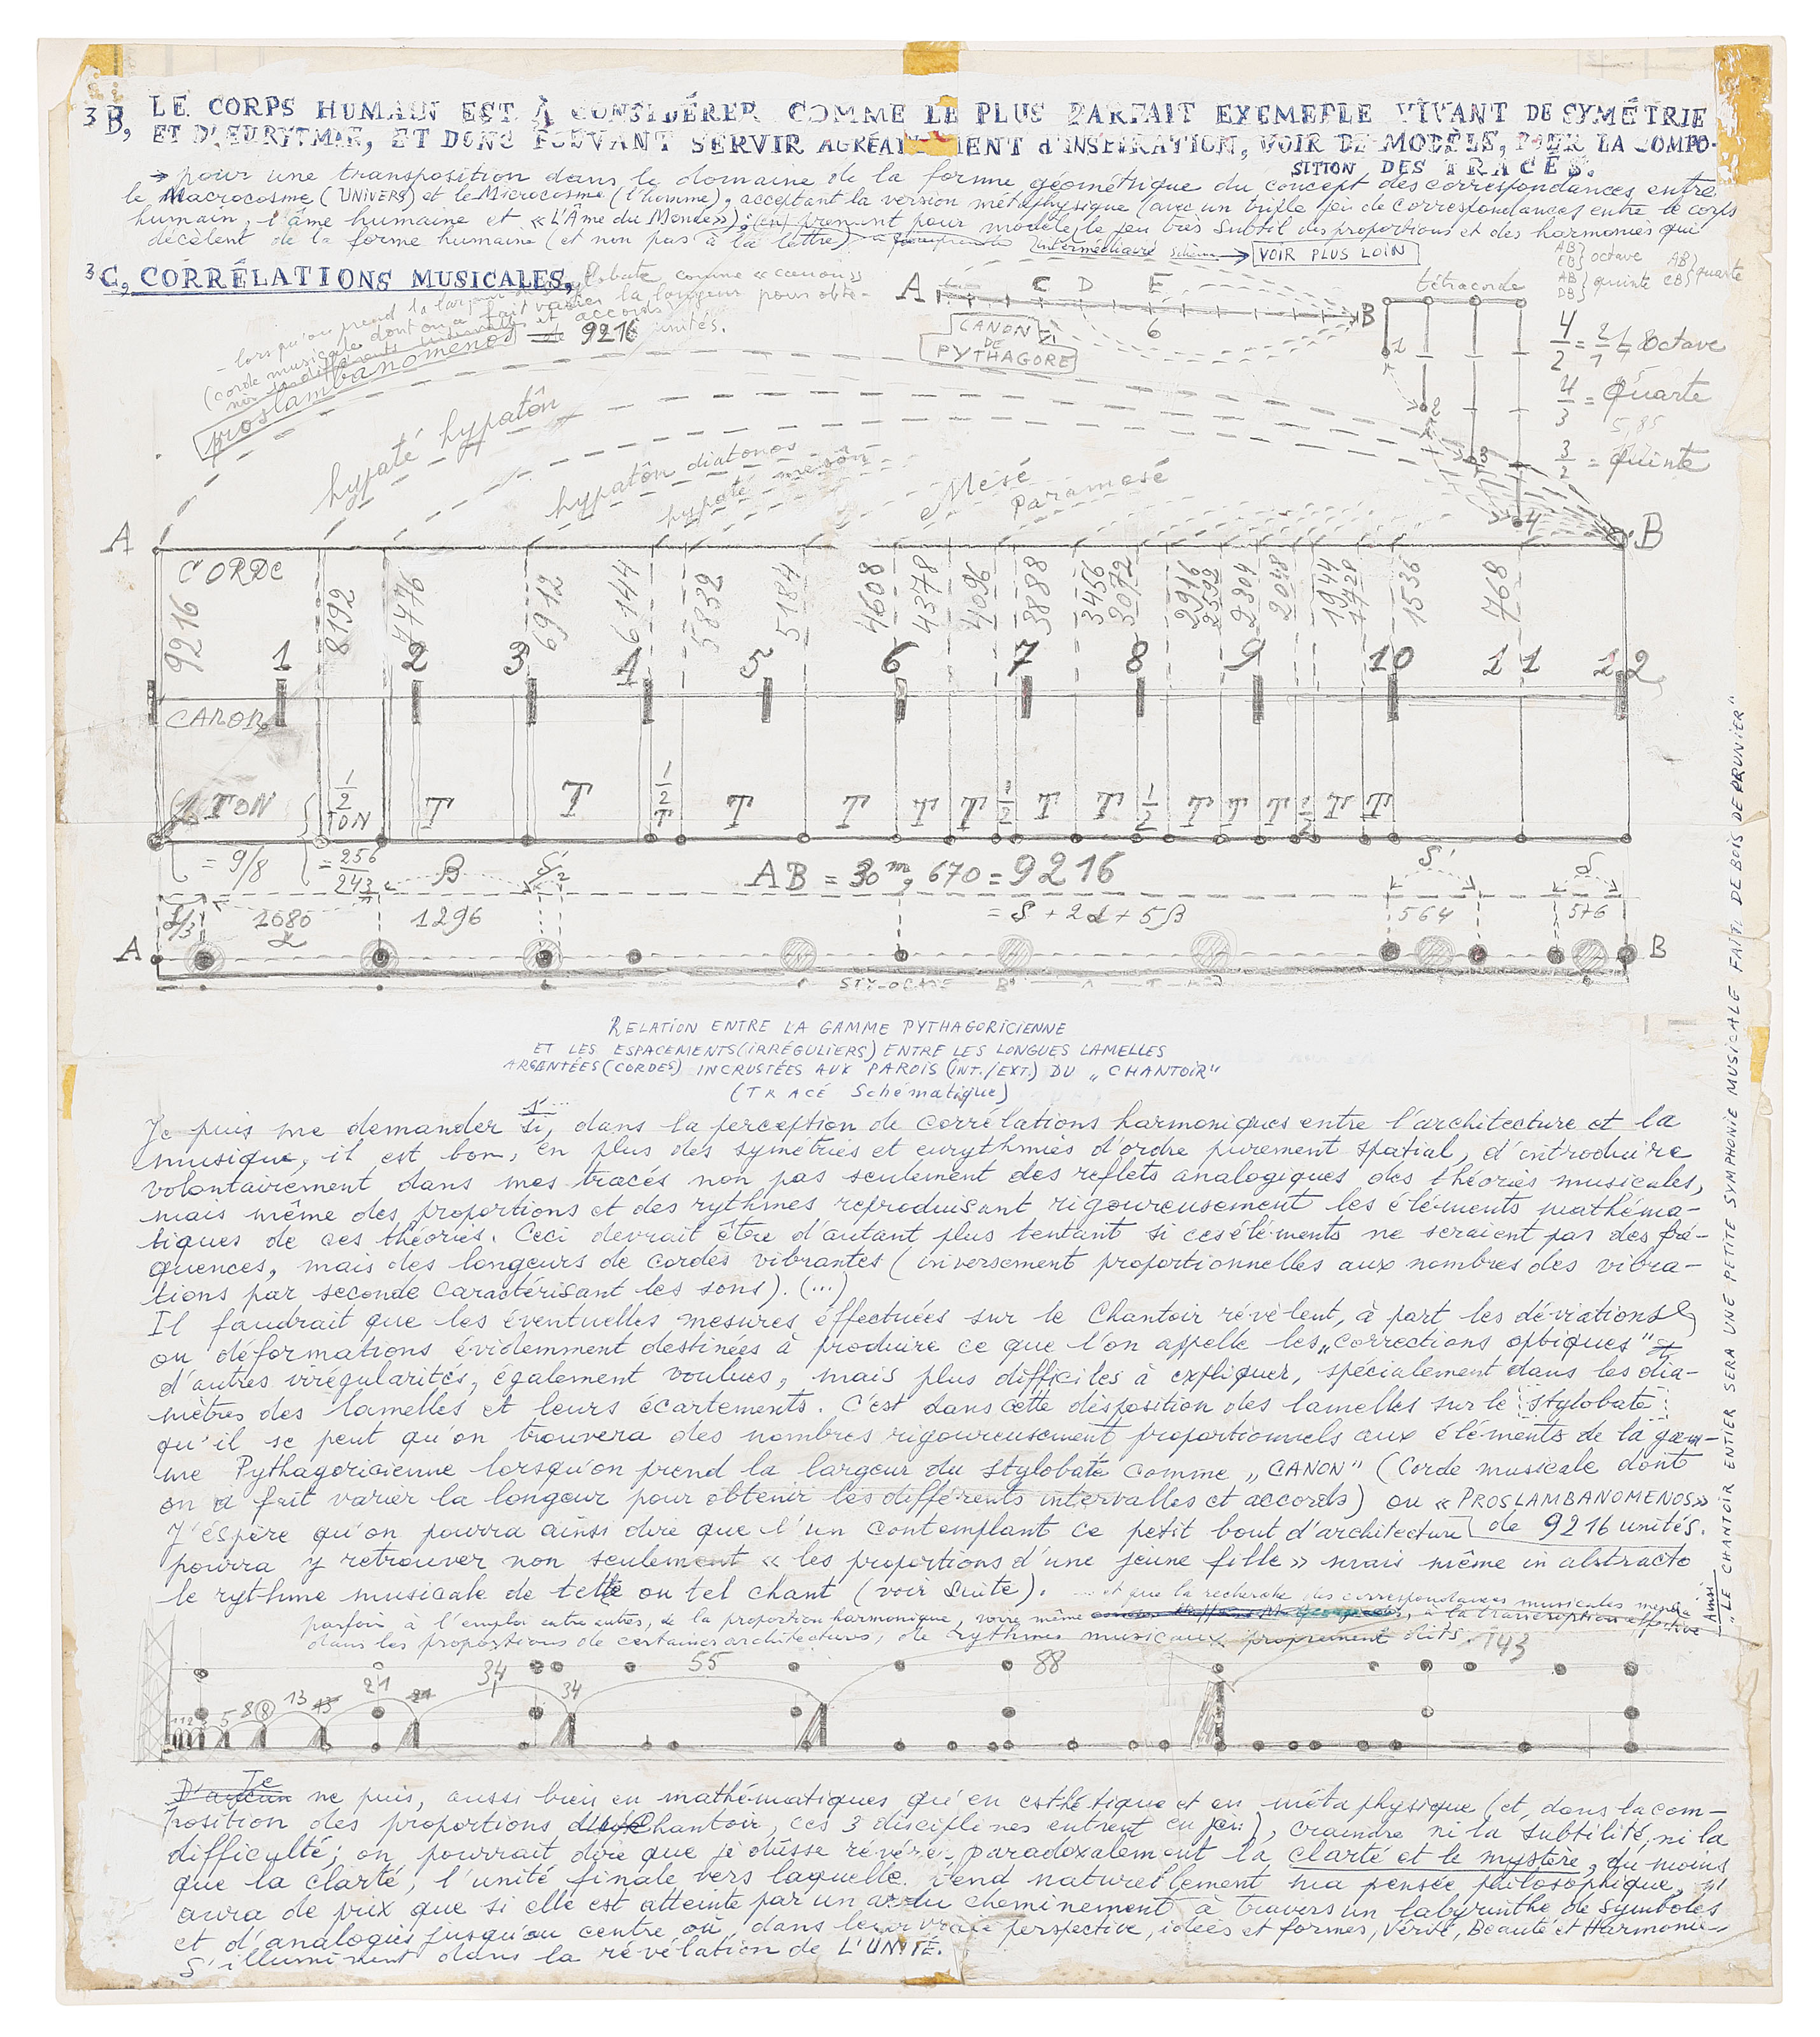 3B, LE CORPS HUMAIN EST À CONSIDÉRER COMME LE PLUS PARFAIT EXEMEPLE VIVANT DE SYMÉTRIE
ET D'EURYTMIE, ET DONC POUVANT SERVIR AGRÉABLEMENT d'INSPIRATION, VOIR DE MODÈLE, POUR LA COMPO-
SITION DES TRACÉS.
→ pour une transposition dans le domaine de la forme géométrique du concept des correspondances entre
le Macrocosme (UNIVERS) et le Microcosme (l'homme), acceptant la version métaphysique (avec un triple jeu de correspondances entre le corps
humain, l'âme humaine et «L'Âme du Monde»); (en) prenant pour modèle, le jeu très subtil des proportions et des harmonies qui
décèlent de la forme humaine (et non pas à la lettre)
intermédiaire schéma → VOIR PLUS LOIN
3C, CORRÉLATIONS MUSICALES,
- lorsqu'on prend la largeur du stylobate comme «canon»
(corde musicale dont on a fait varier la longueur pour obte-
nir les différents intervalles et accords
proslambanomenos de 9216 unités.
A C D E B
6
CANON
DE
PYTHAGORE
tétracorde
1
2
3
4
AB
CB } octave
AB
DB } quinte
AB
CB } quarte
4/2 = 2/1 Octave
4/3 = Quarte
3/2 = Quinte
hypaté hypatôn
hypatôn diatonos
hypaté mesôn
Mésé
Paramesé
A B
CORDE
9216 8192 7776 6912 6144 5832 5184 4608 4378 4096 3888 3456 3072 2916 2592 2304 2048 1944 1728 1536 768
1 2 3 4 5 6 7 8 9 10 11 12
CANON
1 TON 1/2 TON T T 1/2 T T T T T 1/2 T T 1/2 T T T 1/2 T T
= 9/8 = 256/243 β
AB = 30m, 670 = 9216
= δ + 2α + 5β
δ' δ
1080 1296 564 576
α
A B
STYLOBATE
RELATION ENTRE LA GAMME PYTHAGORICIENNE
ET LES ESPACEMENTS (IRRÉGULIERS) ENTRE LES LONGUES LAMELLES
ARGENTÉES (CORDES) INCRUSTÉES AUX PAROIS (INT./EXT.) DU „CHANTOIR"
(TRACÉ Schématique)
Je puis me demander si, dans la perception de corrélations harmoniques entre l'architecture et la
musique, il est bon, en plus des symétries et eurythmies d'ordre purement spatial, d'introduire
volontairement dans mes tracés non pas seulement des reflets analogiques des théories musicales,
mais même des proportions et des rythmes reproduisant rigoureusement les éléments mathéma-
tiques de ces théories. Ceci devrait être d'autant plus tentant si ces éléments ne seraient pas des fré-
quences, mais des longeurs de cordes vibrantes (inversement proportionnelles aux nombres des vibra-
tions par seconde caractérisant les sons). (...)
Il faudrait que les éventuelles mesures effectuées sur le Chantoir révèlent, à part les déviations
ou déformations évidemment destinées à produire ce que l'on appelle les „corrections optiques" et
d'autres irrégularités, également voulues, mais plus difficiles à expliquer, spécialement dans les dia-
mètres des lamelles et leurs écartements. C'est dans cette disposition des lamelles sur le stylobate
qu'il se peut qu'on trouvera des nombres rigoureusement proportionnels aux éléments de la gam-
me Pythagoricienne lorsqu'on prend la largeur du stylobate comme „CANON" (Corde musicale dont
on a fait varier la longueur pour obtenir les différents intervalles et accords) ou «PROSLAMBANOMENOS»
de 9216 unités.
J'éspère qu'on pourra ainsi dire que l'un contemplant ce petit bout d'architecture
pourra y retrouver non seulement «les proportions d'une jeune fille» mais même in abstracto
le rythme musicale de telle ou tel chant (voir suite).
... et que la recherche des correspondances musicales mène
parfois à l'emploi entre autres, de la proportion harmonique, voire même à la transcription effective
dans les proportions de certaines architectures, de rythmes musicaux proprement dits.
1 1 2 3 5 8 (8) 13 13 21 21 34 34 55 88 143
Je ne puis, aussi bien en mathématiques qu'en esthétique et en métaphysique (et, dans la com-
position des proportions du Chantoir, ces 3 disciplines entrent en jeu), craindre ni la subtilité, ni la
difficulté; on pourrait dire que je dûsse révérer paradoxalement la clarté et le mystère, du moins
que la clarté, l'unité finale vers laquelle tend naturellement ma pensée philosophique, n'
aura de prix que si elle est atteinte par un ardu cheminement à travers un labyrinthe de Symboles
et d'analogies jusqu'au centre où, dans leur vraie perspective, idées et formes, Vérité, Beauté et Harmonie
s'illuminent dans la révélation de L'UNITÉ.
Ainsi „LE CHANTOIR ENTIER SERA UNE PETITE SYMPHONIE MUSICALE FAIT DE BOIS DE PRUNIER"